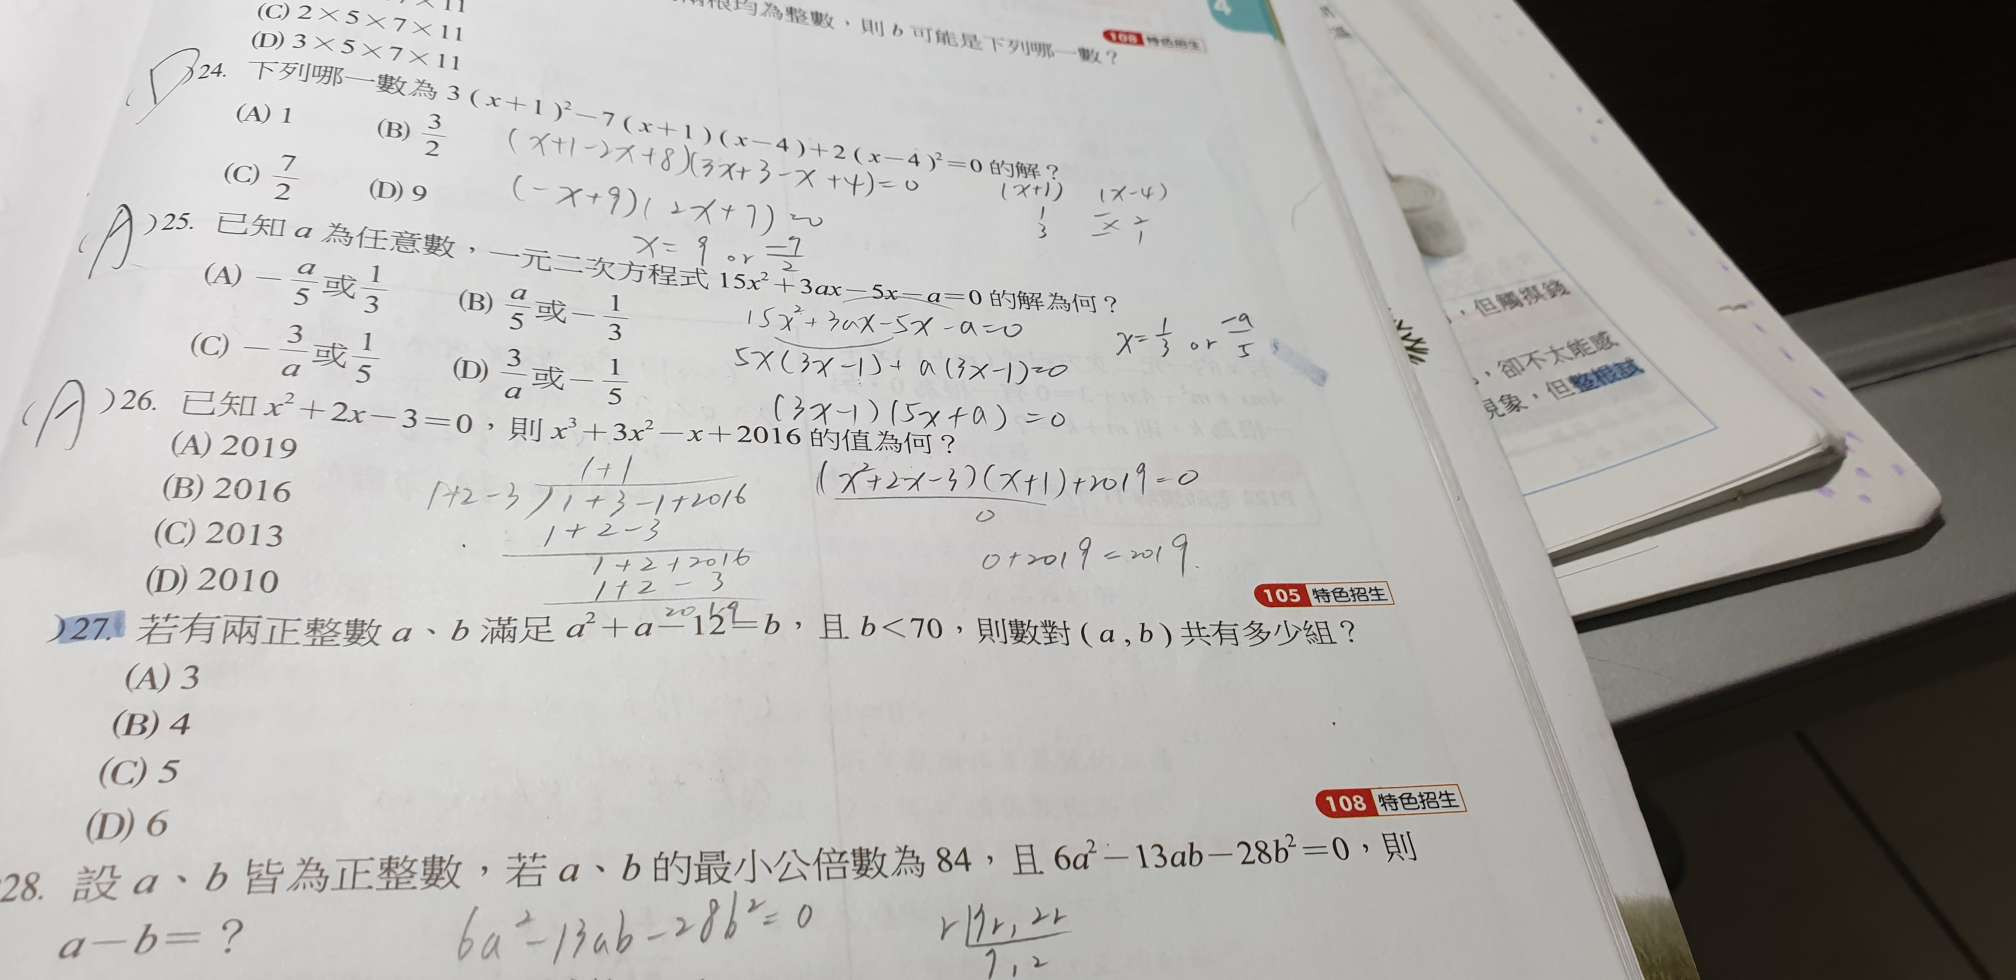 (C) 2×5×7×11
(D) 3×5×7×11
兩根均為整數，則 b 可能是下列哪一數？
108 特色招生
4
(D) 24. 下列哪一數為 3(x+1)²－7(x+1)(x－4)＋2(x－4)²＝0 的解？
(A) 1 (B) 3/2
(C) 7/2 (D) 9
(x+1-2x+8)(3x+3-x+4)=0
(-x+9)(2x+7)=0
x= 9 or -7/2
(x+1) (x-4)
(A) 25. 已知 a 為任意數，一元二次方程式 15x²＋3ax－5x－a＝0 的解為何？
(A) －a/5 或 1/3 (B) a/5 或 －1/3
(C) －3/a 或 1/5 (D) 3/a 或 －1/5
15x²+3ax-5x-a=0
5x(3x-1)+a(3x-1)=0
(3x-1)(5x+a)=0
x=1/3 or -a/5
(A) 26. 已知 x²＋2x－3＝0，則 x³＋3x²－x＋2016 的值為何？
(A) 2019
(B) 2016
(C) 2013
(D) 2010
1+1
1+2-3 ) 1+3-1+2016
1+2-3
1+2+2016
1+2-3
2019
(x²+2x-3)(x+1)+2019=0
0
0+2019=2019.
105 特色招生
)27. 若有兩正整數 a、b 滿足 a²＋a－12＝b，且 b＜70，則數對 (a , b) 共有多少組？
(A) 3
(B) 4
(C) 5
(D) 6
108 特色招生
28. 設 a、b 皆為正整數，若 a、b 的最小公倍數為 84，且 6a²－13ab－28b²＝0，則
a－b＝？
6a²-13ab-28b²=0
r 7r, 2r
7, 2
，但觸摸錢
，卻不太能感
現象，但整根試